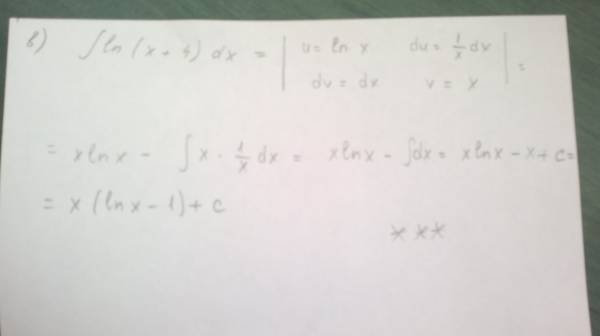 в) ∫ ln (x + 4) dx = | u = ln x du = 1/x dx
dv = dx v = x | =
= x ln x - ∫ x · 1/x dx = x ln x - ∫dx = x ln x - x + c =
= x (ln x - 1) + c
***